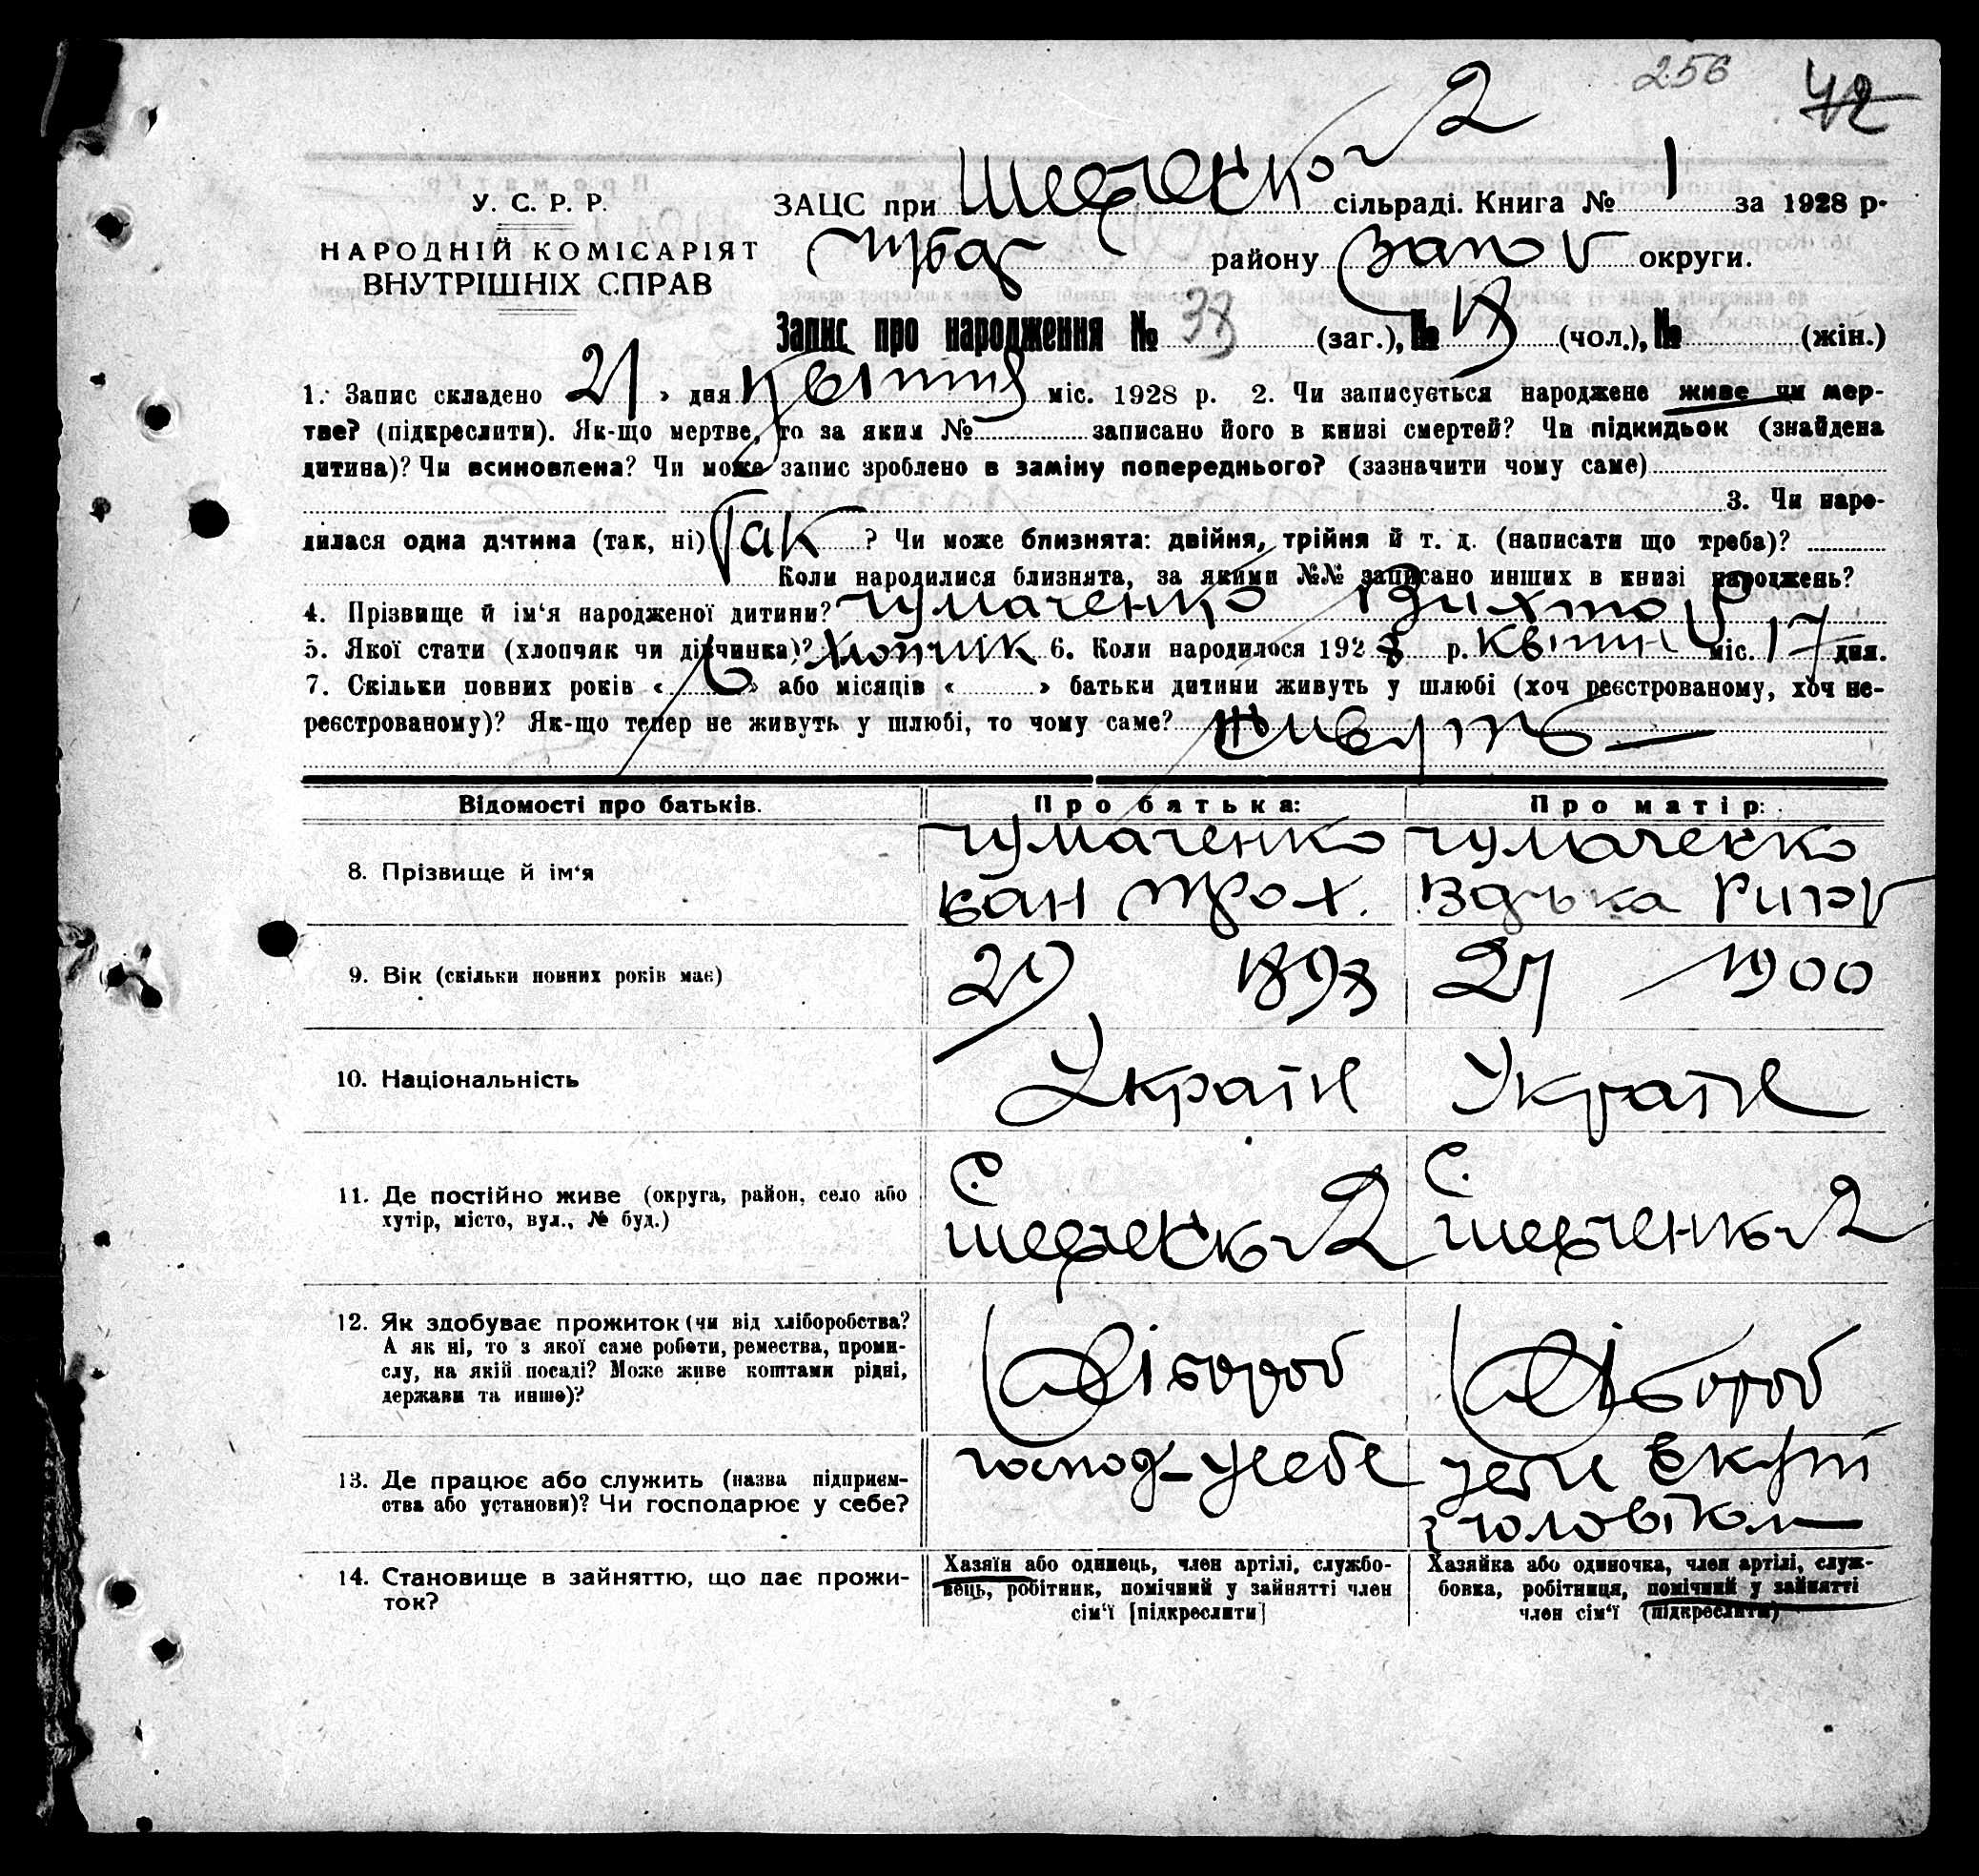 256 42
У. С. Р. Р.
НАРОДНІЙ КОМІСАРІЯТ
ВНУТРІШНІХ СПРАВ
ЗАЦС при Шевченко 2 сільраді. Книга № 1 за 1928 р.
району Запоr округи.
Запис про народження № 38 (заг.), № 18 (чол.), № (жін.)
1. Запис складено 21 » дня Квітня міс. 1928 р. 2. Чи записується народжене живе чи мер-
тве? (підкреслити). Як-що мертве, то за яким № записано його в книзі смертей? Чи підкидьок (знайдена
дитина)? Чи всиновлена? Чи може запис зроблено в заміну попереднього? (зазначити чому саме)
3. Чи наро-
дилася одна дитина (так, ні) Так ? Чи може близнята: двійня, трійня й т. д. (написати що треба)?
Коли народилися близнята, за якими №№ записано инших в книзі народжень?
4. Прізвище й ім‘я народженої дитини? Чумаченко Вихтор
5. Якої стати (хлопчяк чи дівчинка)? Хлопчик 6. Коли народилося 1928 р. Квітня міс. 17 дня.
7. Скільки повних років « 6 » або місяців « » батьки дитини живуть у шлюбі (хоч реєстрованому, хоч не-
реєстрованому)? Як-що тепер не живуть у шлюбі, то чому саме? Живуть
Відомості про батьків. Про батька: Про матір:
8. Прізвище й ім‘я Чумаченко Чумаченко
Іван Трох.
9. Вік (скільки повних років має) 29 1898 27 1900
10. Національність Україн Україн
11. Де постійно живе (округа, район, село або
хутір, місто, вул., № буд.)
С. С.
Шевченко 2 Шевченко 2
12. Як здобуває прожиток (чи від хліборобства?
А як ні, то з якої саме роботи, ремества, проми-
слу, на якій посаді? Може живе коштами рідні,
держави та инше)?
Хлібороб Хлібороб
13. Де працює або служить (назва підприєм-
ства або установи)? Чи господарює у себе?
господ у себе
з чоловіком
14. Становище в зайняттю, що дає прожи-
ток?
Хазяїн або одинець, член артілі, службо-
вець, робітник, помічний у зайнятті член
сім‘ї [підкреслити]
Хазяйка або одиночка, член артілі, служ-
бовка, робітниця, помічний у зайнятті
член сім‘ї (підкреслити)